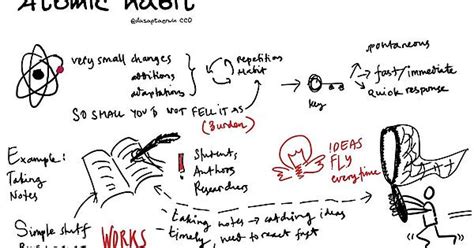 Atomic habit
@dasaptaerwin CC0
very small changes
additions
adaptations
repetition
Habit
SO SMALL YOU'D NOT FELL IT AS
(Burden)
Key
spontaneous
fast/immediate
Quick response
Example:
Taking
Notes
! Students
Authors
Researchers
IDEAS
FLY
everytime
taking notes → catching ideas
timely, need to react fast
Simple stuff
WORKS